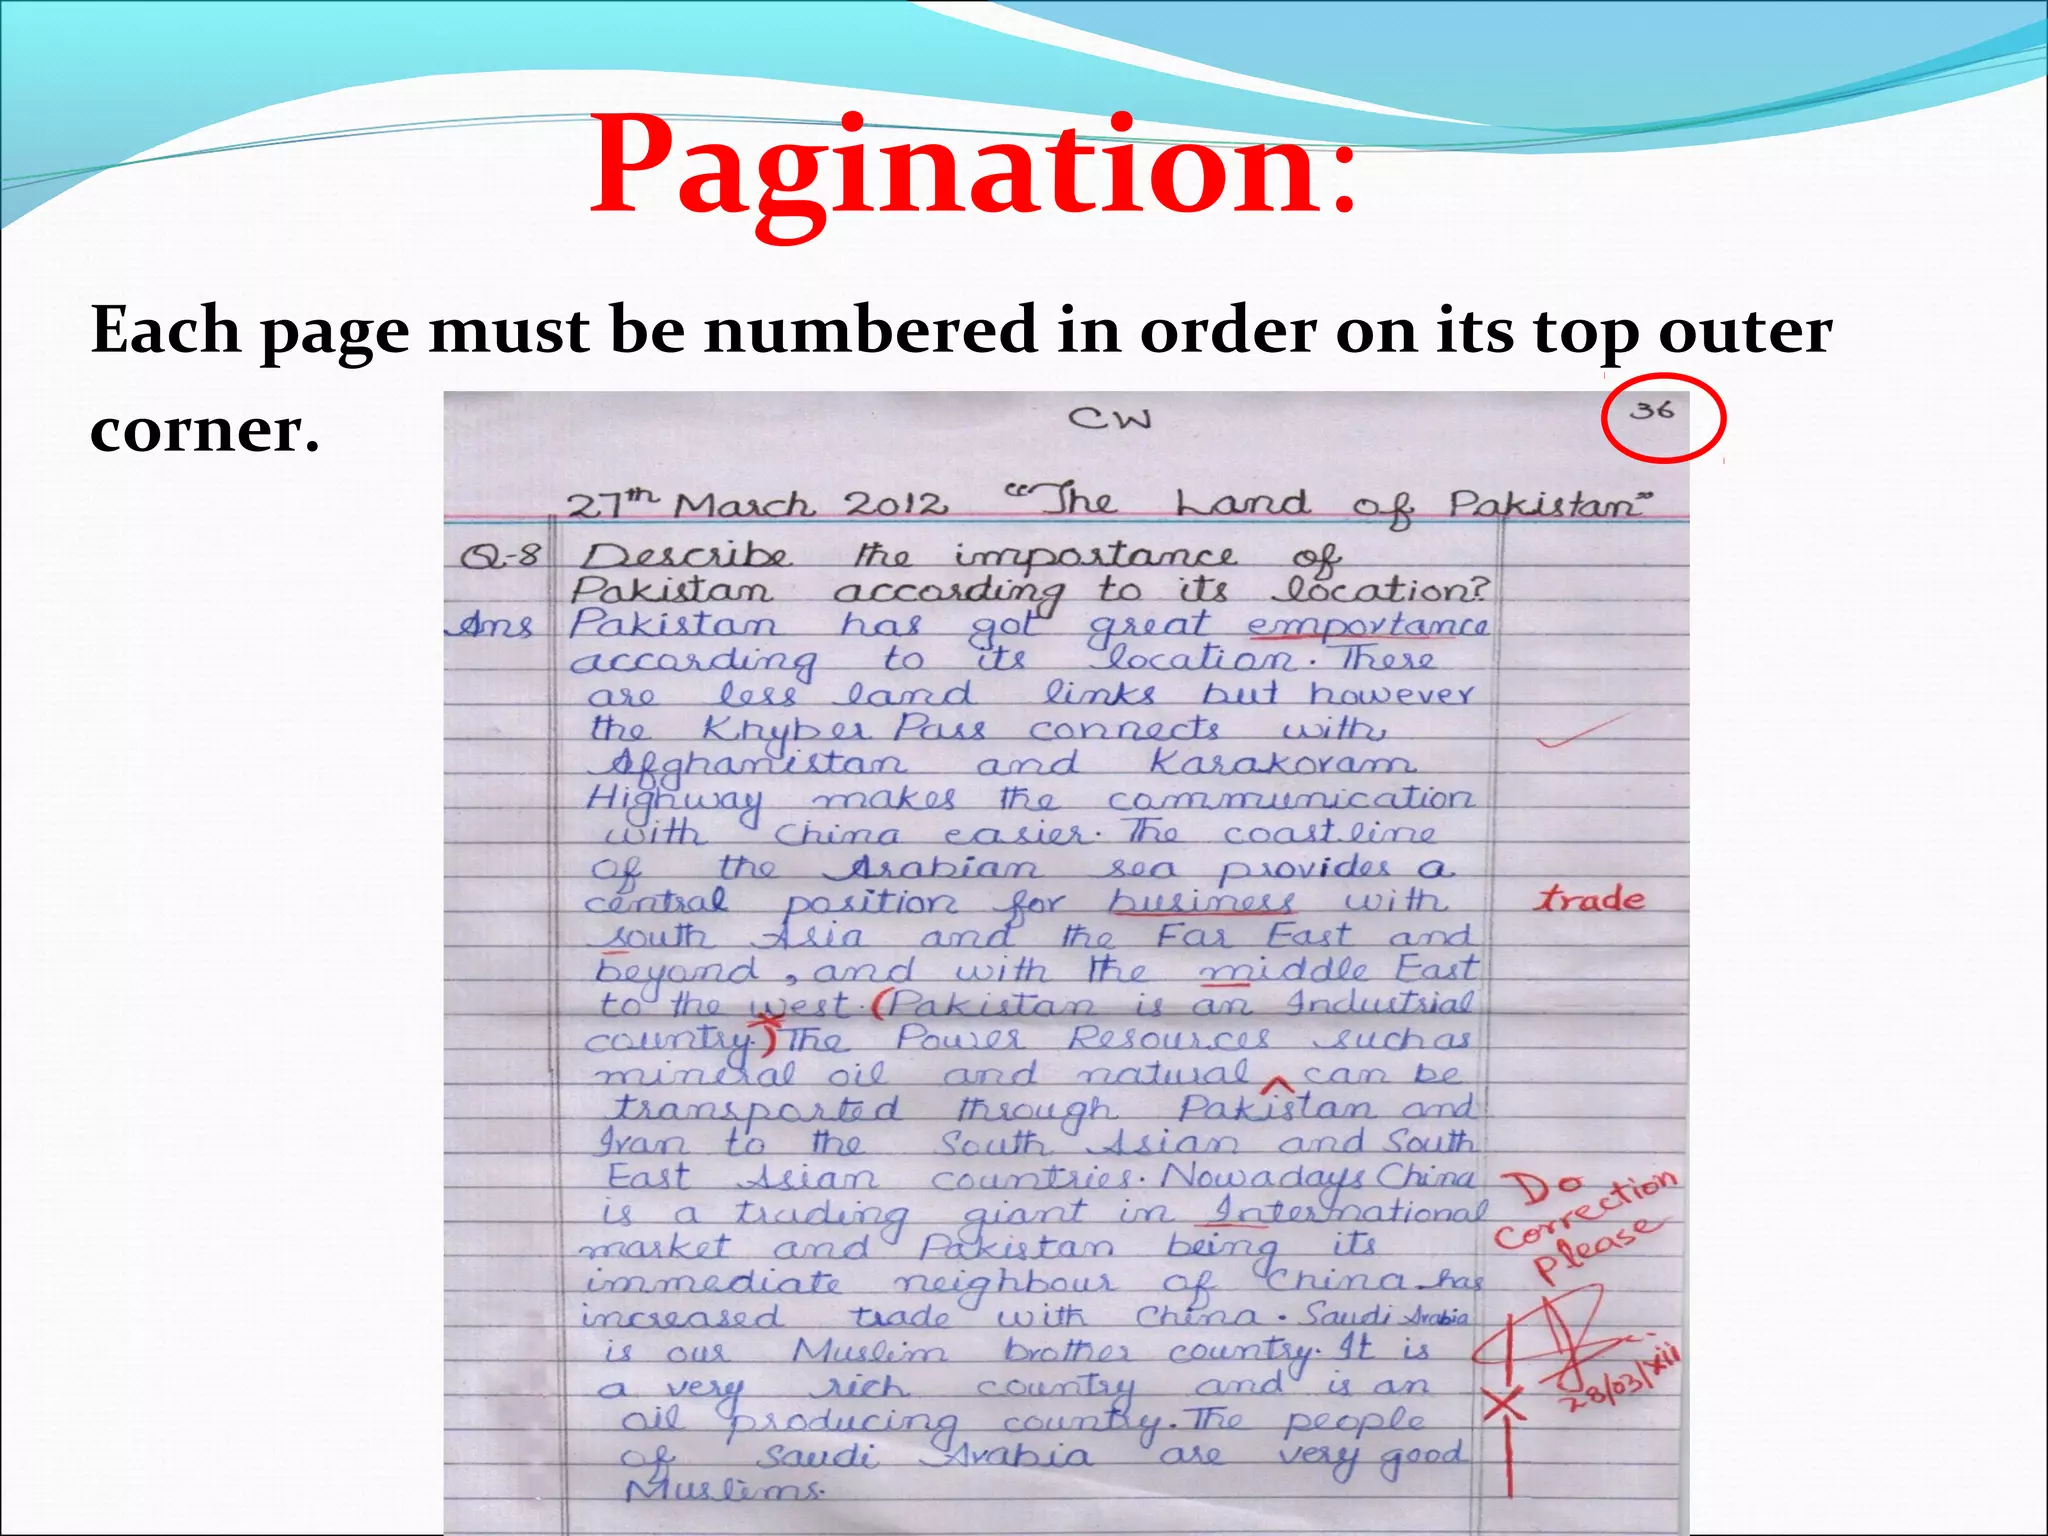 Pagination:
Each page must be numbered in order on its top outer
corner.
CW 36
27th March 2012 "The Land of Pakistan"
Q-8 Describe the importance of
Pakistan according to its location?
Ans Pakistan has got great emportance
according to its location. There
are less land links but however
the Khyber Pass connects with
Afghanistan and Karakoram
Highway makes the communication
with China easier. The coastline
of the Arabian sea provides a
central position for business with trade
south Asia and the Far East and
beyond, and with the middle East
to the west. (Pakistan is an Industrial
country.) The Power Resources such as
mineral oil and natural ^ can be
transported through Pakistan and
Iran to the South Asian and South
East Asian countries. Nowadays China
is a trading giant in International
market and Pakistan being its
immediate neighbour of China has
increased trade with China. Saudi Arabia
is our Muslim brother country. It is
a very rich country and is an
oil producing country. The people
of Saudi Arabia are very good
Muslims.
Do
correction
Please
28/03/xii